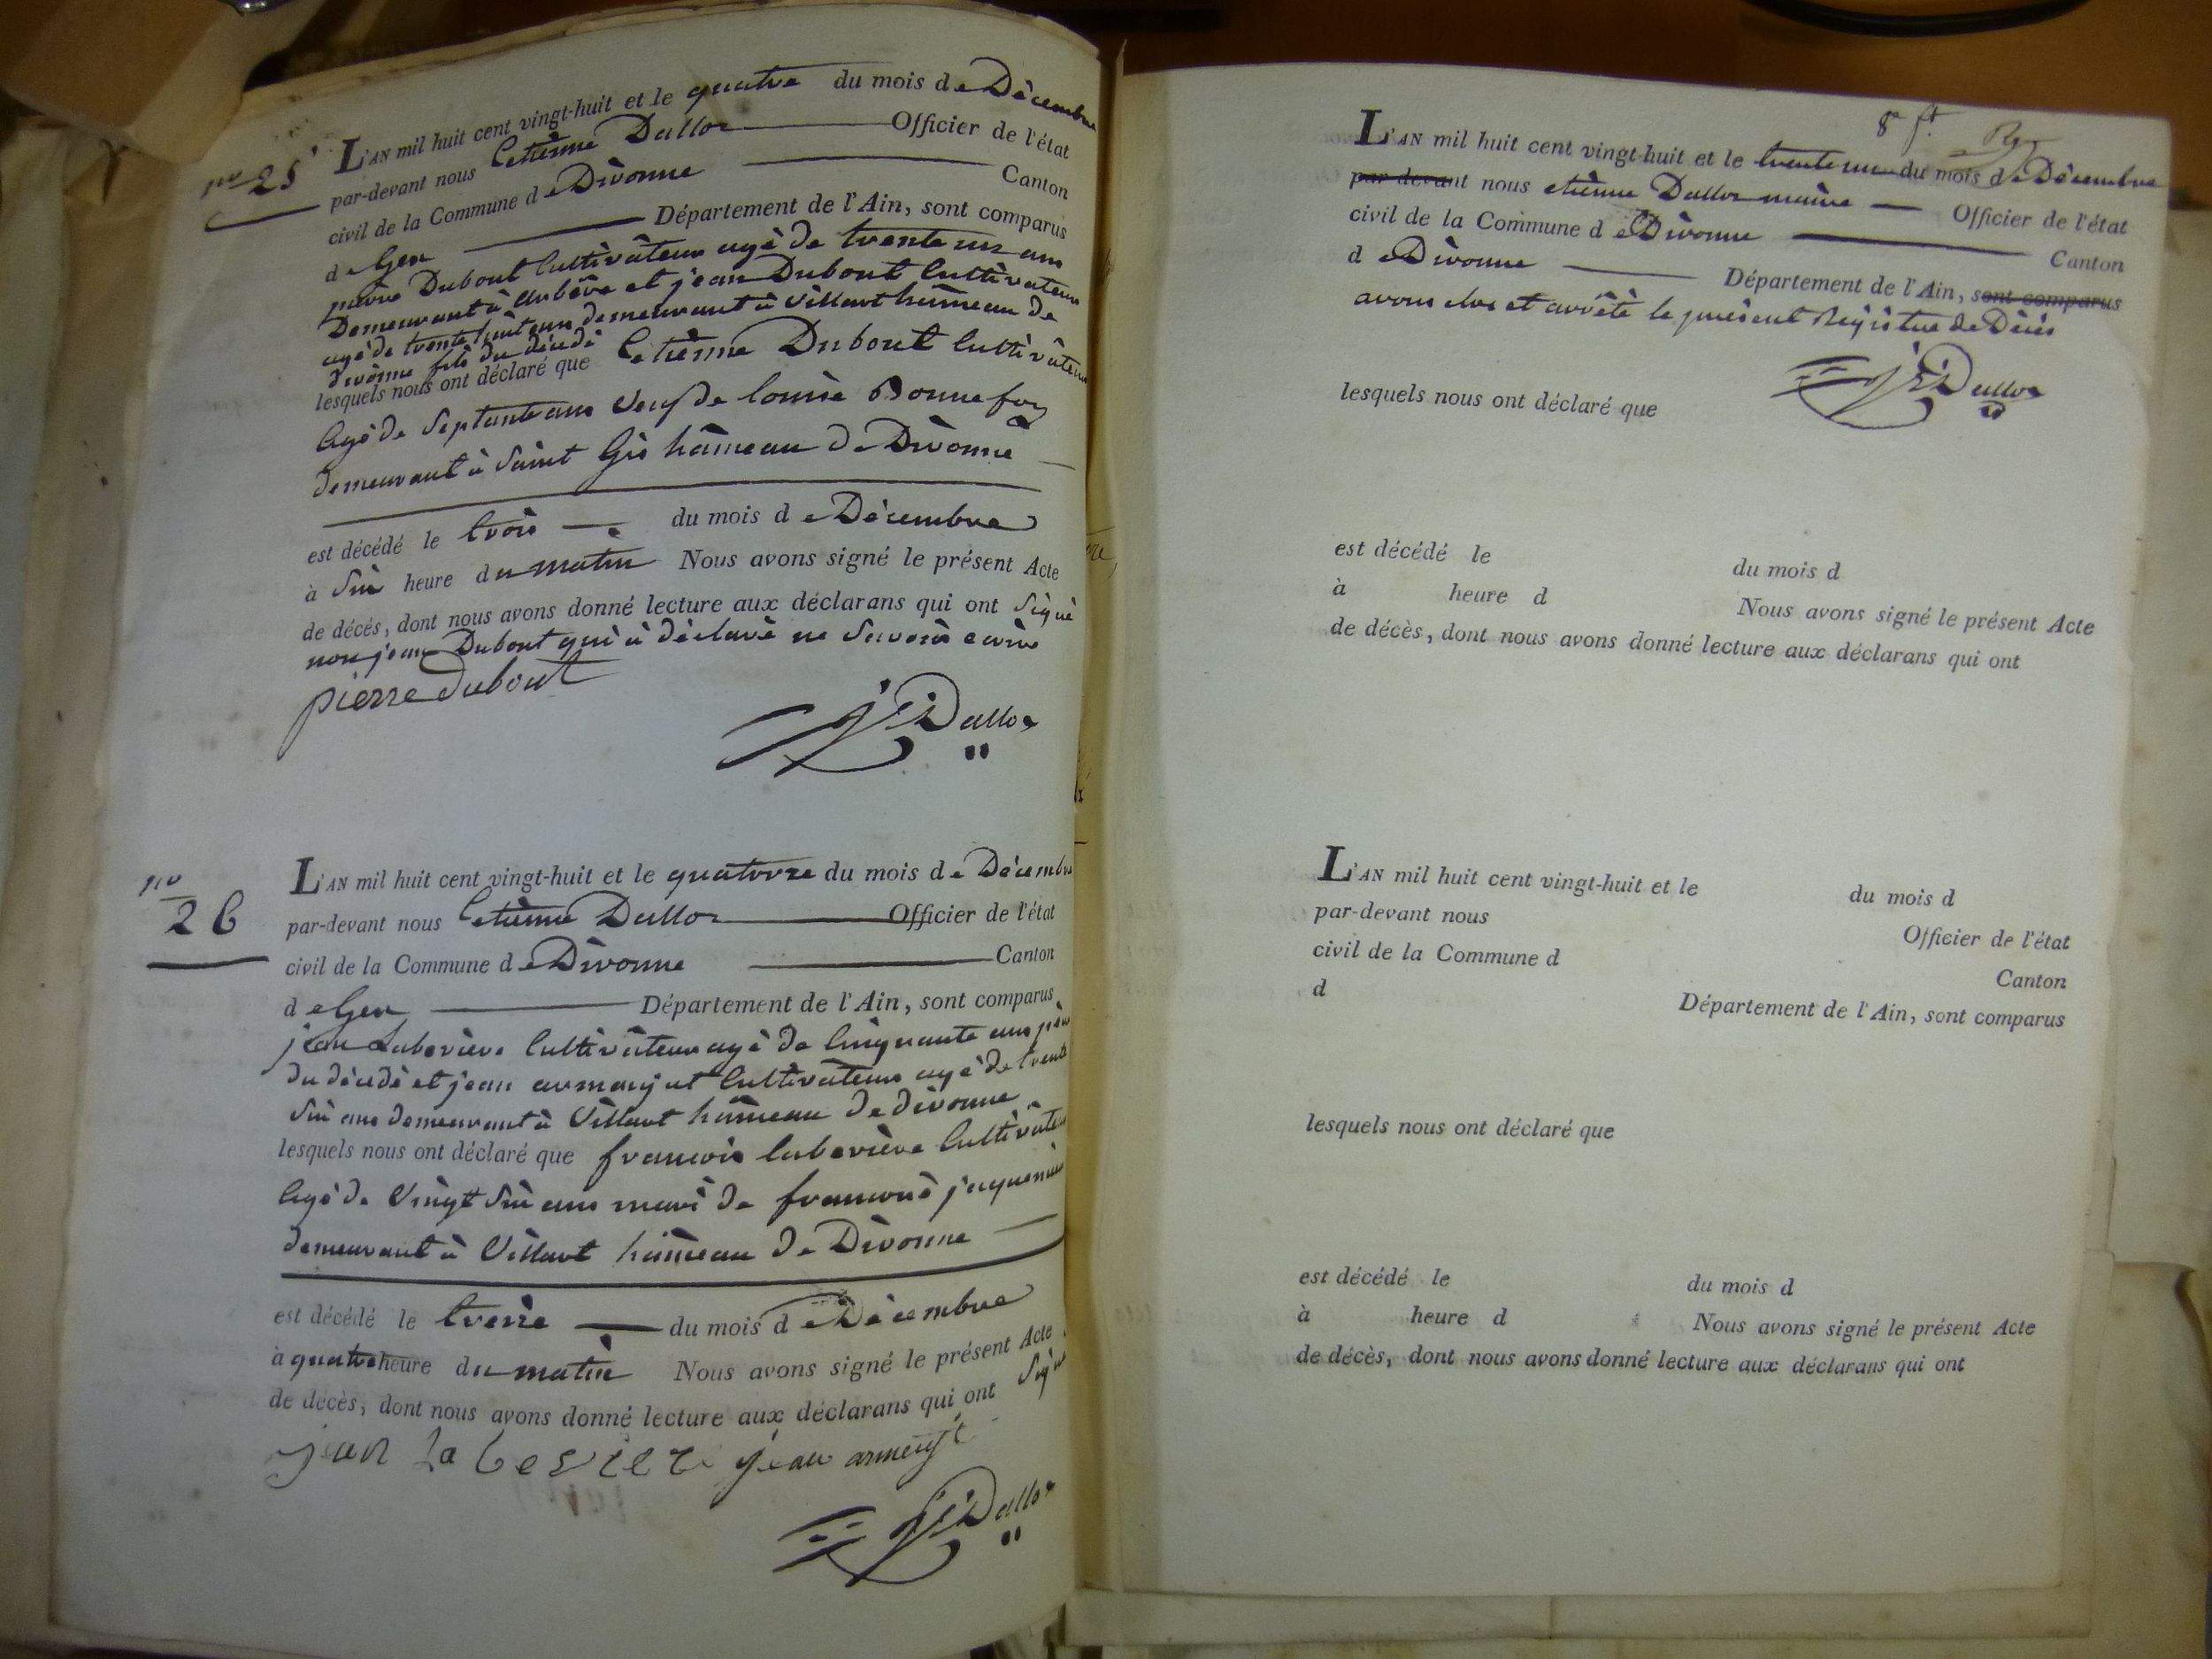 no 25
L'AN mil huit cent vingt-huit et le quatre du mois de Dècembre
par-devant nous Etiènne Dallos Officier de l'état
civil de la Commune de Divonne Canton
de Gex Département de l'Ain, sont comparus
pierre Dubout Cultivateur agè de trente un ans
Demeurant à et jean Dubout Cultivateur
agè de trente huit ans demeurant à Villart hâmeau de
divonne fils du décédé
lesquels nous ont déclaré que Etiènne Dubout Cultivateur
Agè de Septante ans Veuf de louise Bonnefoy
demeurant à Saint Gix hâmeau de Divonne
est décédé le trois du mois de Dècembre
à Six heure du matin Nous avons signé le présent Acte
de décés, dont nous avons donné lecture aux déclarans qui ont Signè
non jean Dubout qui à dèclarè ne Savoir ecrire
pierre dubout
Dallos
no 26
L'AN mil huit cent vingt-huit et le quatorze du mois de Dècembre
par-devant nous Etiènne Dallos Officier de l'état
civil de la Commune de Divonne Canton
de Gex Département de l'Ain, sont comparus
jean Laberière Cultivateur agè de Cinquante ans père
du dècèdè et jean armanjat Cultivateur agè de trente
Six ans demeurant à Villart hâmeau de divonne
lesquels nous ont déclaré que francois laberière Cultivateur
Agè de Vingt Six ans mari de demeurant à Villart hâmeau de Divonne
est décédé le treize du mois de Dècembre
à quatre heure du matin Nous avons signé le présent Acte
de décès, dont nous avons donné lecture aux déclarans qui ont Signè
jean la beriere jean
Dallos
8e ft.
L'AN mil huit cent vingt-huit et le trente un du mois de Dècembre
par-devant nous etiènne Dallos maire Officier de l'état
civil de la Commune de Divonne Canton
de Divonne Département de l'Ain, sont comparus
avons clos et arrêtè le prèsent Règistre de Dècès
Dallos
lesquels nous ont déclaré que
est décédé le du mois d
à heure d Nous avons signé le présent Acte
de décès, dont nous avons donné lecture aux déclarans qui ont
L'AN mil huit cent vingt-huit et le du mois d
par-devant nous Officier de l'état
civil de la Commune d Canton
d Département de l'Ain, sont comparus
lesquels nous ont déclaré que
est décédé le du mois d
à heure d Nous avons signé le présent Acte
de décès, dont nous avons donné lecture aux déclarans qui ont